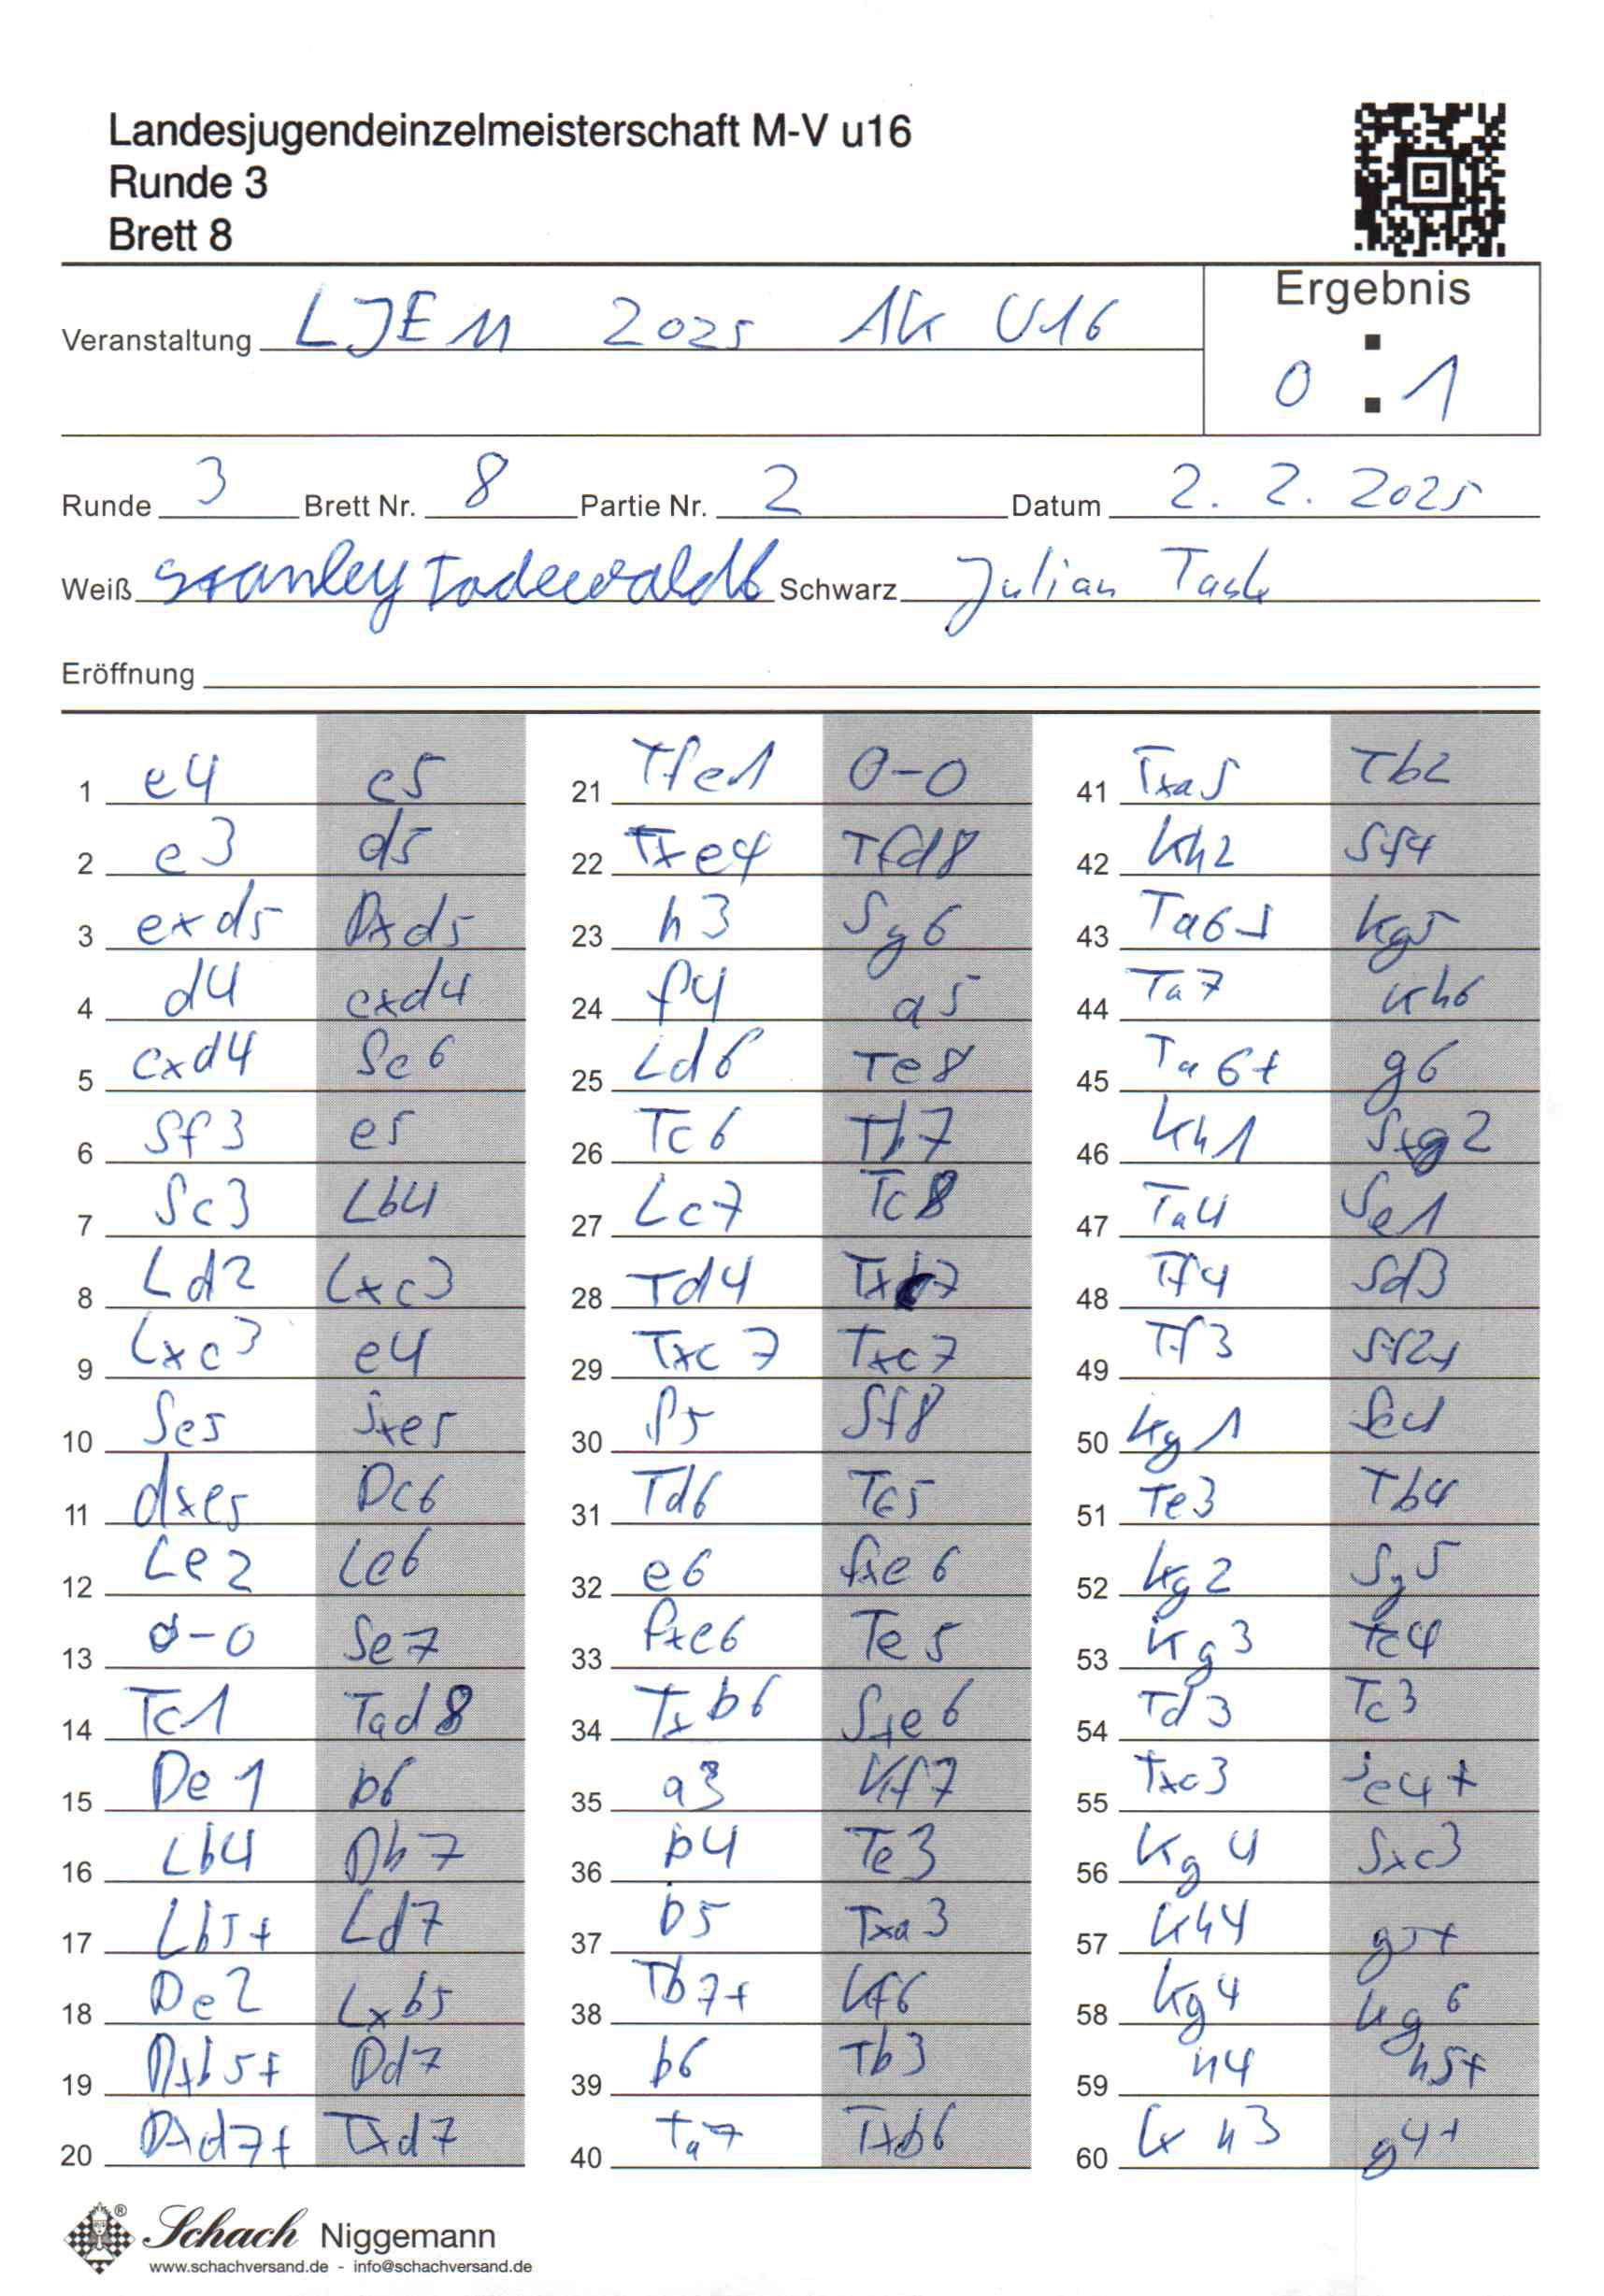 Landesjugendeinzelmeisterschaft M-V u16
Runde 3
Brett 8
Ergebnis
Veranstaltung LJEM 2025 AK U16
0 : 1
Runde 3 Brett Nr. 8 Partie Nr. 2 Datum 2. 2. 2025
Weiß Stanley Schwarz Julian
Eröffnung
1 e4 c5
2 c3 d5
3 exd5 Dxd5
4 d4 cxd4
5 cxd4 Sc6
6 Sf3 e5
7 Sc3 Lb4
8 Ld2 Lxc3
9 Lxc3 e4
10 Se5 Sxe5
11 dxe5 Dc6
12 Le2 Le6
13 0-0 Se7
14 Tc1 Tad8
15 De1 b6
16 Lb4 Db7
17 Lb5+ Ld7
18 De2 Lxb5
19 Dxb5+ Dd7
20 Dxd7+ Txd7
21 Tfe1 0-0
22 Txe4 Tfd8
23 h3 Sg6
24 f4 a5
25 Ld6 Te8
26 Tc6 Tb7
27 Lc7 Tc8
28 Td4 Txc7
29 Txc7 Txc7
30 f5 Sf8
31 Td6 Tc5
32 e6 fxe6
33 fxe6 Te5
34 Txb6 Sxe6
35 a3 Kf7
36 b4 Te3
37 b5 Txa3
38 Tb7+ Kf6
39 b6 Tb3
40 Ta7 Txb6
41 Txa5 Tb2
42 Kh2 Sf4
43 Ta6+ Kg5
44 Ta7 Kh6
45 Ta6+ g6
46 Kh1 Sxg2
47 Ta4 Se1
48 Tf4 Sd3
49 Tf3 Sf2+
50 Kg1 Se4
51 Te3 Tb4
52 Kg2 Sg5
53 Kg3 Tc4
54 Td3 Tc3
55 Txc3 Se4+
56 Kg4 Sxc3
57 Kh4 g5+
58 Kg4 Kg6
59 h4 h5+
60 Kh3 g4+
Schach Niggemann
www.schachversand.de - info@schachversand.de